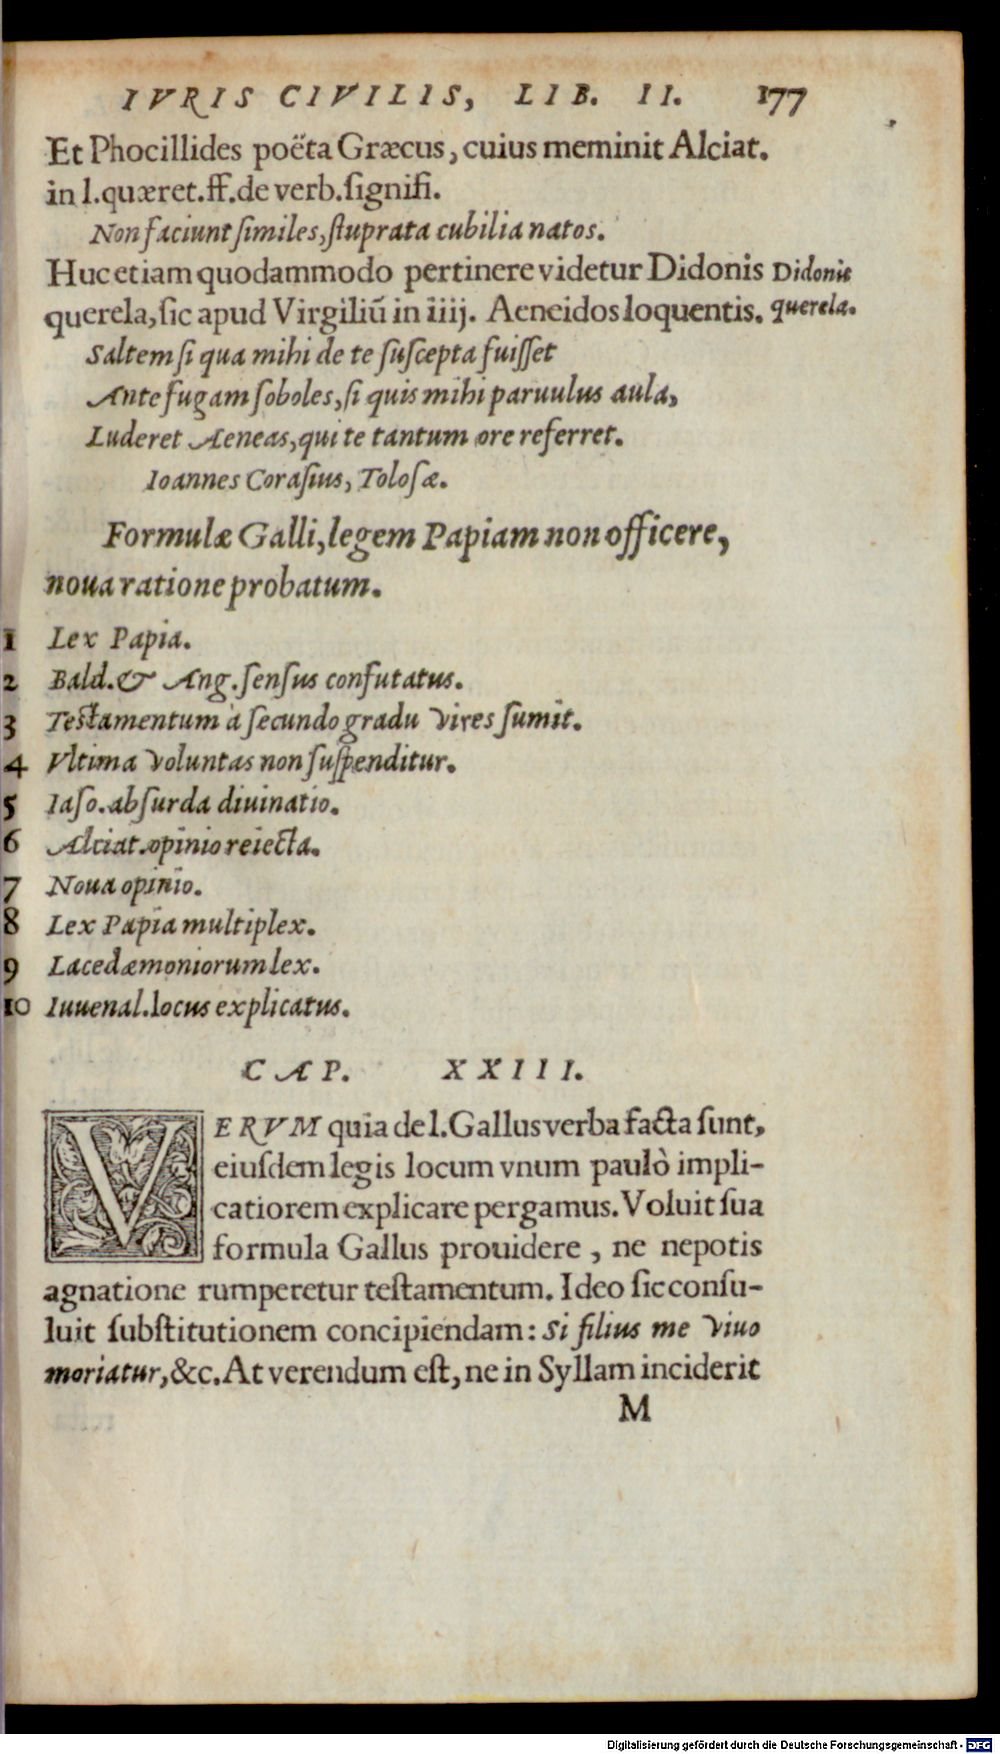 IVRIS CIVILIS, LIB. II. 177
Et Phocillides poëta Græcus, cuius meminit Alciat.
in l.quæret.ff.de verb.signifi.
Non faciunt similes, stuprata cubilia natos.
Huc etiam quodammodo pertinere videtur Didonis
Didonis
querela, sic apud Virgiliũ in iiij. Aeneidos loquentis.
querela.
Saltem si qua mihi de te suscepta fuisset
Ante fugam soboles, si quis mihi paruulus aula,
Luderet Aeneas, qui te tantum ore referret.
Ioannes Corasius, Tolosæ.
Formulæ Galli, legem Papiam non officere,
noua ratione probatum.
1 Lex Papia.
2 Bald. & Ang. sensus confutatus.
3 Testamentum à secundo gradu vires sumit.
4 Vltima voluntas non suspenditur.
5 Iaso. absurda diuinatio.
6 Alciat. opinio reiecta.
7 Noua opinio.
8 Lex Papia multiplex.
9 Lacedæmoniorum lex.
10 Iuuenal. locus explicatus.
CAP. XXIII.
VERVM quia de l. Gallus verba facta sunt,
eiusdem legis locum vnum paulò impli-
catiorem explicare pergamus. Voluit sua
formula Gallus prouidere, ne nepotis
agnatione rumperetur testamentum. Ideo sic consu-
luit substitutionem concipiendam: Si filius me viuo
moriatur, &c. At verendum est, ne in Syllam inciderit
M
Digitalisierung gefördert durch die Deutsche Forschungsgemeinschaft - DFG